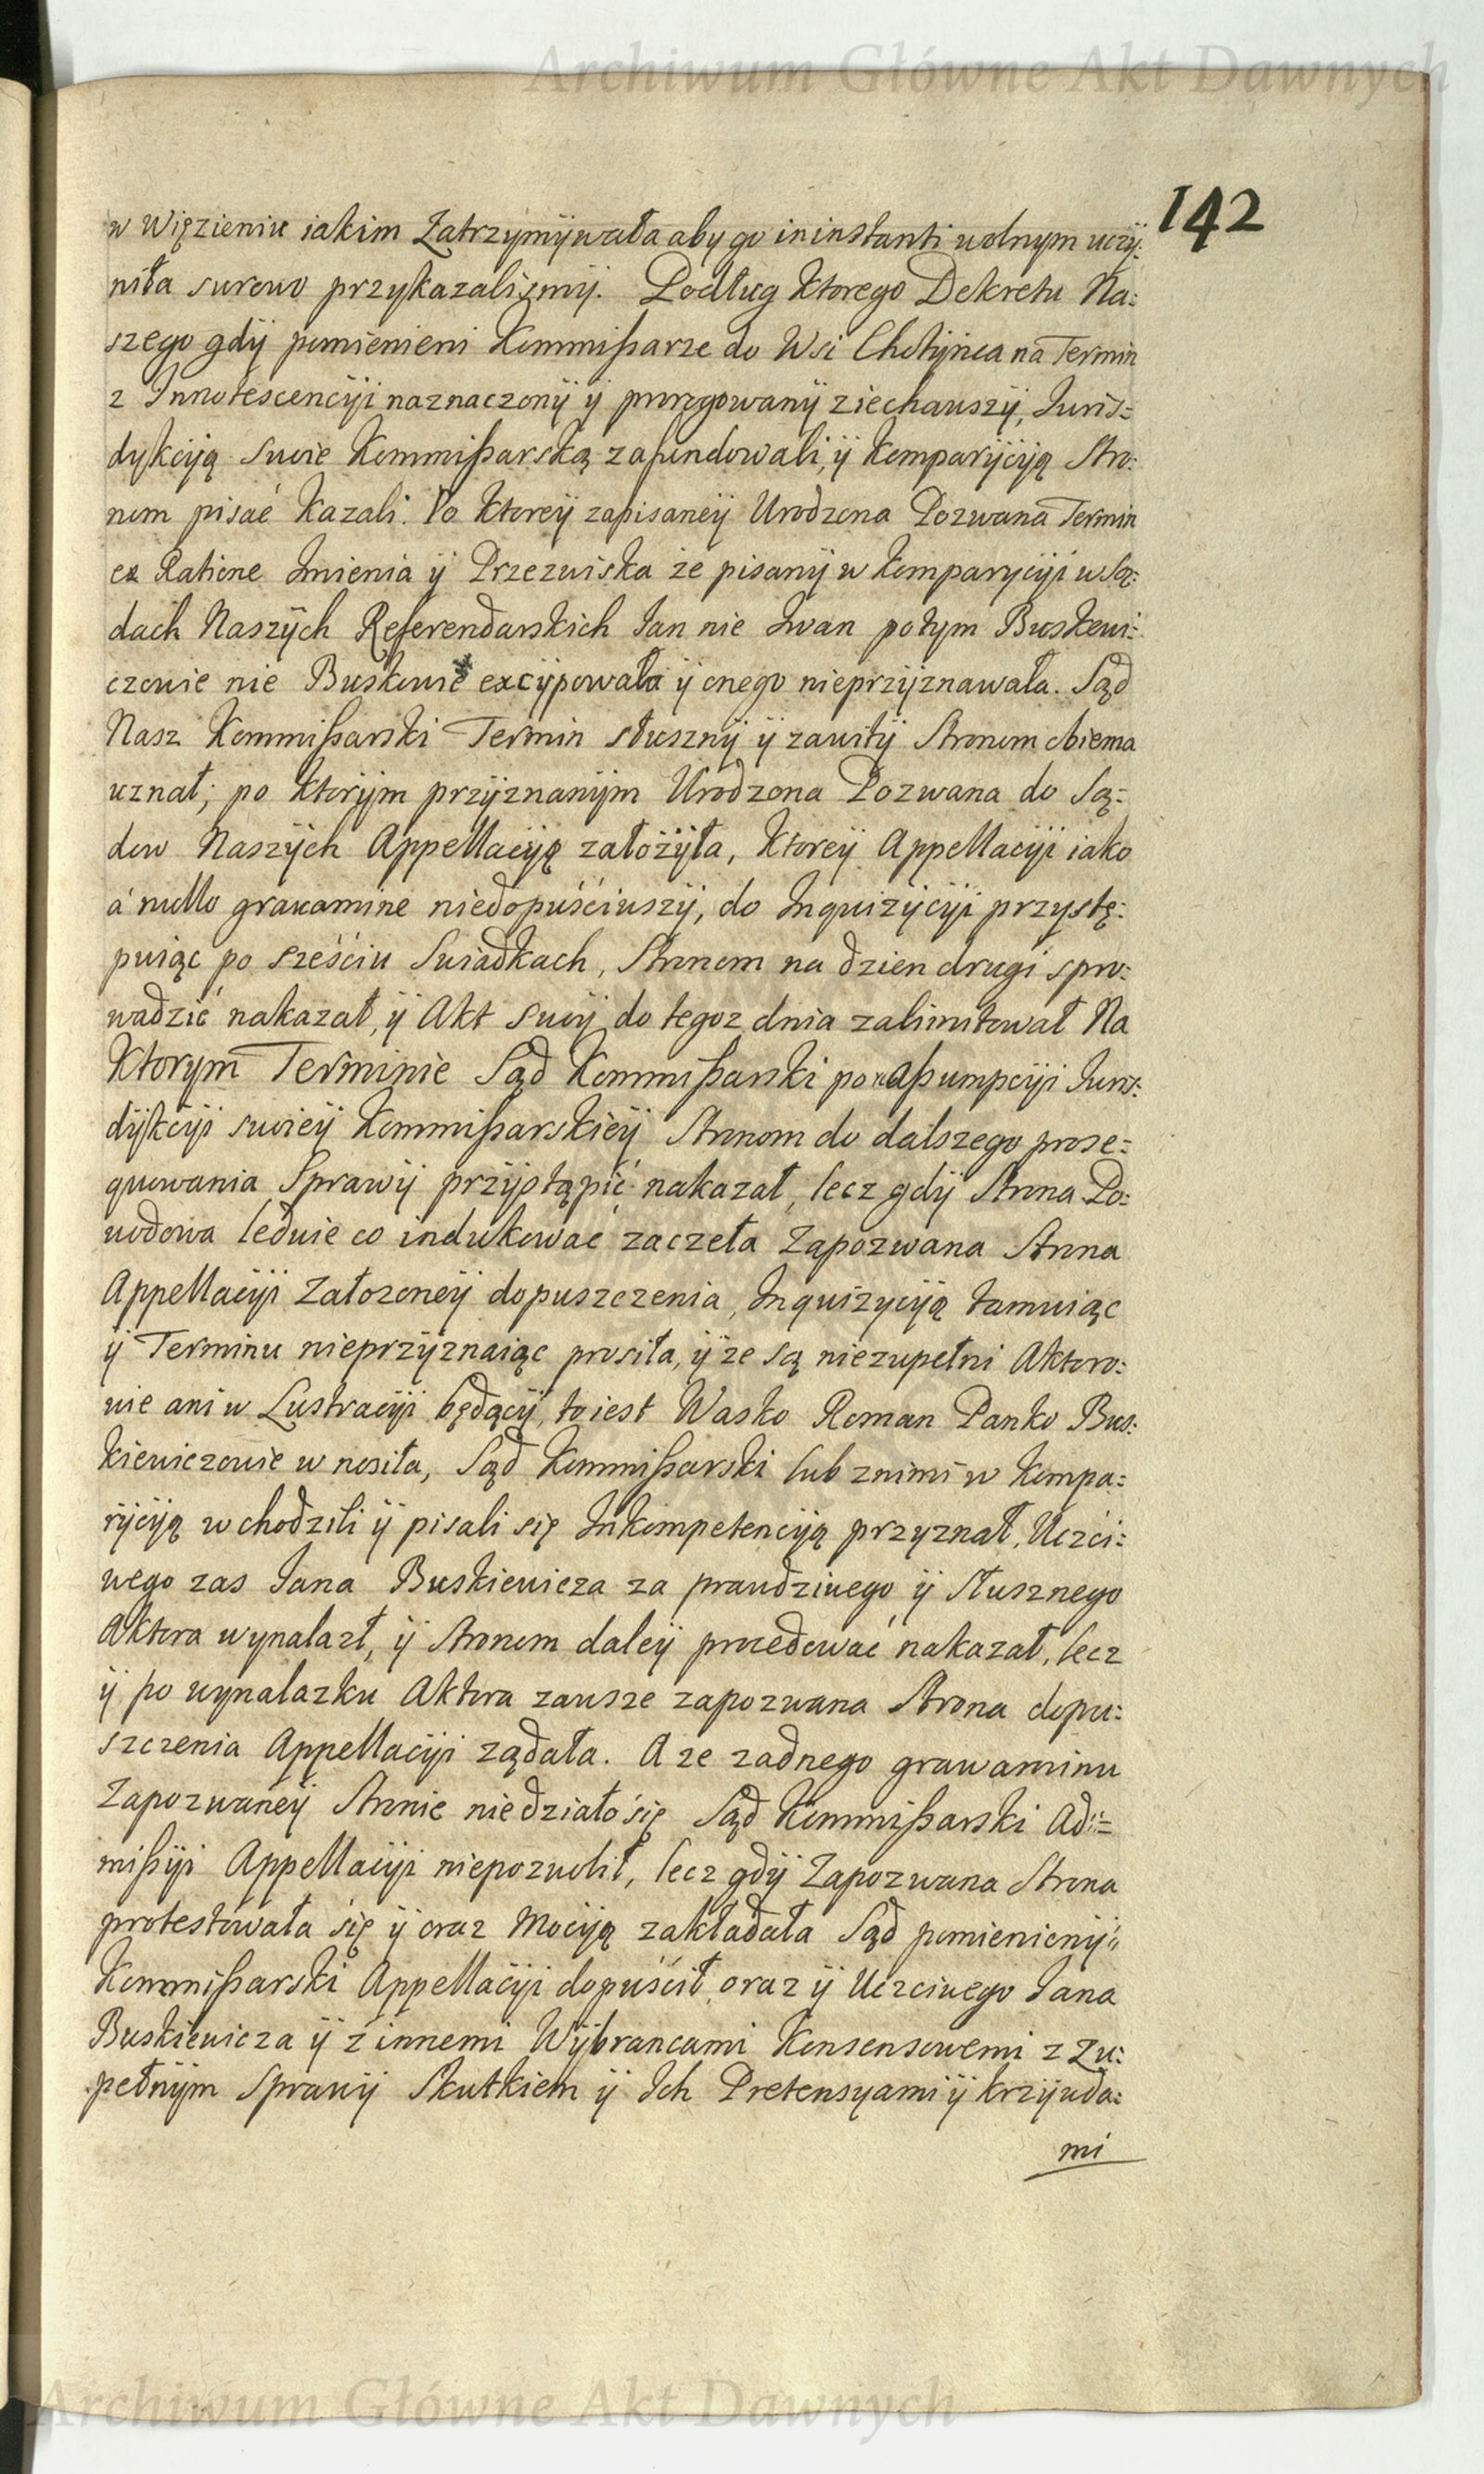 Archiwum Główne Akt Dawnych
142
w Więzieniu iakim Zatrzymÿwała aby go in instanti wolnym uczÿ:
niła surowo przykazaliśmÿ. Podług Ktorego Dekretu Na:
szego gdÿ pomienieni Kommißarze do Wsi Chotÿńca na Termin
z Innotescencÿi naznaczonÿ ÿ prorogowanÿ ziechawszÿ, Juris=
dykcÿą swoię Kommißarską zafundowali, ÿ Komparÿcÿą Stro:
nom pisać Kazali. Po Ktoreÿ zapisaneÿ Urodzona Pozwana Termin
ex Ratione Imienia ÿ Przezwiska że pisanÿ w Komparycÿi w Są:
dach Naszÿch Referendarskich Jan nie Iwan potym Buskewi:
czowie nie Buskowie excÿpowała ÿ onego nieprzÿznawała. Sąd
Nasz Kommißarski Termin słusznÿ ÿ zawitÿ Stronom obiema
uznał; po Ktorÿm przÿznanÿm Urodzona Pozwana do Są=
dow Naszÿch Appellacÿą założÿła, Ktoreÿ Appellacÿi iako
á nullo grawamine niedopuściwszÿ, do Inquizÿcÿi przystę:
puiąc po sześciu Swiadkach, Stronom na dzien drugi spro:
wadzić nakazał, ÿ Akt swoÿ do tegoz dnia zalimitował Na
Ktorym Terminie Sąd Kommißarski po reaßumpcÿi Juris:
dÿkcÿi swoieÿ Kommißarskieÿ Stronom do dalszego prose=
quowania Sprawÿ przÿstąpić nakazał, lecz gdÿ Strona Po:
wodowa ledwie co indukować zaczeła Zapozwana Strona
Appellacÿi Założoneÿ dopuszczenia, Inquizycÿą tamuiąc
ÿ Terminu nieprzÿznaiąc prosiła, ÿ że są niezupełni Aktoro:
wie ani w Lustracÿi będącÿ, to iest Wasko Roman Panko Bus:
kiewiczowie wnosiła, Sąd Kommißarski lub z nimi w Kompa:
rÿcÿą wchodzili ÿ pisali się Inkompetencÿą przyznał, Uczci:
wego zas Jana Buskiewicza za prawdziwego ÿ Słusznego
Aktora wynalazł, ÿ Stronom daleÿ procedować nakazał, lecz
ÿ po wynalazku Aktora zawsze zapozwana Strona dopu:
szczenia Appellacÿi ządała. A ze zadnego grawaminu
Zapozwaneÿ Stronie nie działo się Sąd Kommißarski Ad:=
mißÿi Appellacÿi niepozwolił, lecz gdÿ Zapozwana Strona
protestowała się ÿ oraz Mocÿą zakładała Sąd pomienionÿ
Kommißarski Appellacÿi dopuścił, oraz ÿ Uczciwego Jana
Buskiewicza ÿ z innemi Wÿbrancami Konsensowemi z Zu:
pełnÿm Sprawÿ Skutkiem ÿ Ich Pretensyami ÿ krzÿwda:
mi
Archiwum Główne Akt Dawnych